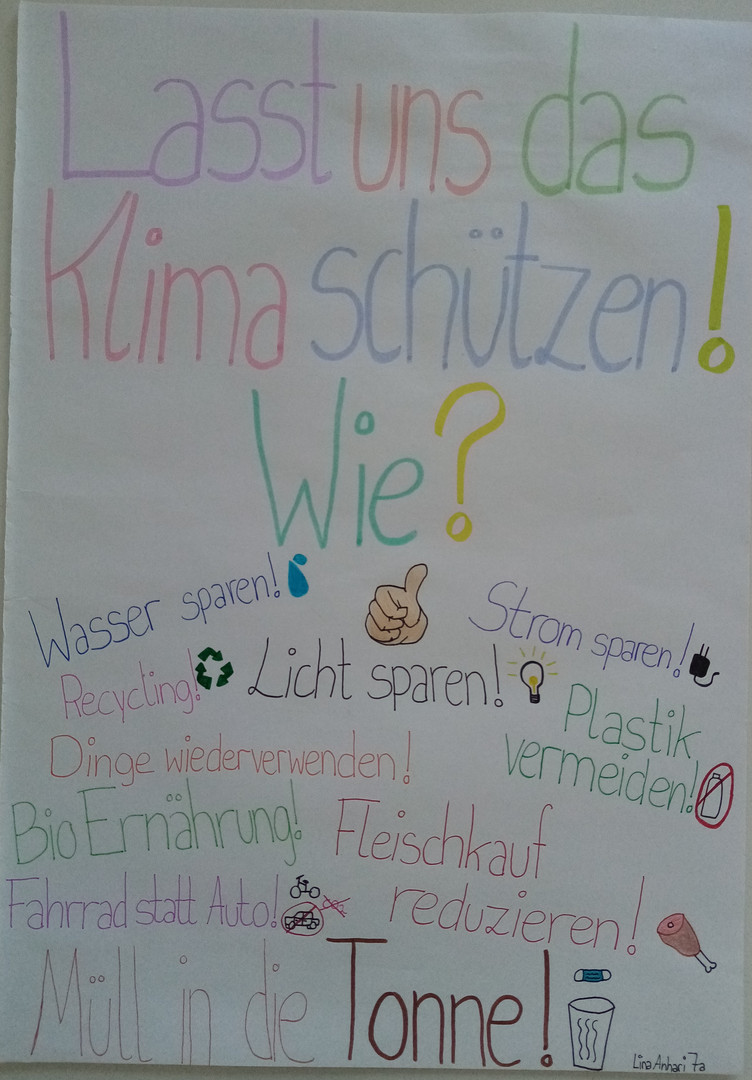 Lasst uns das
Klima schützen!
Wie?
Wasser sparen!
Strom sparen!
Recycling!
Licht sparen!
Plastik
vermeiden!
Dinge wiederverwenden!
Bio Ernährung!
Fleischkauf
reduzieren!
Fahrrad statt Auto!
Müll in die Tonne!
Lina Anhari 7a